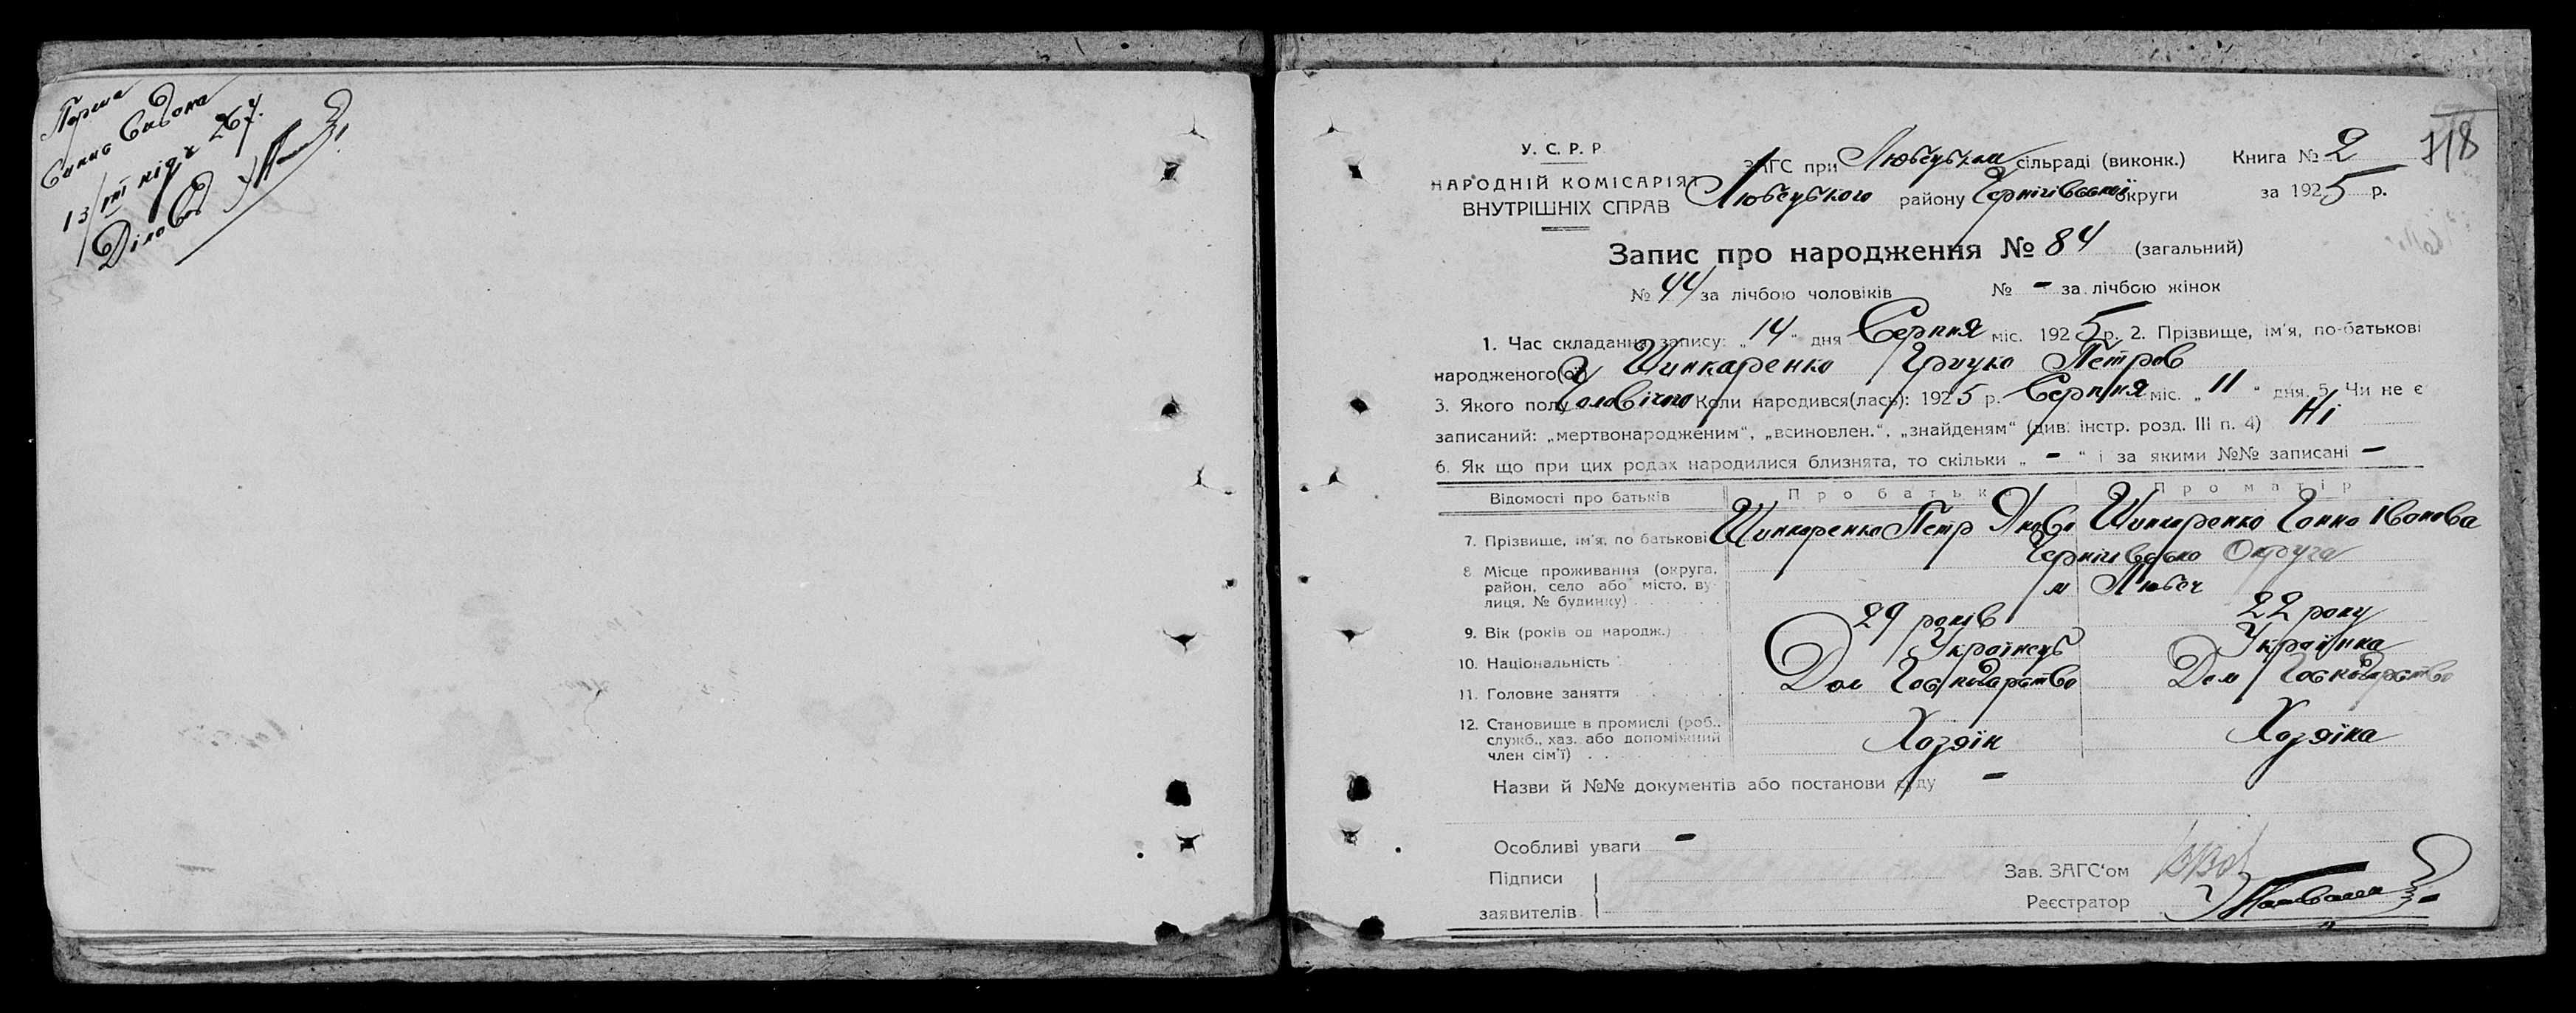 Перша
Випис Видана
13/VIII під ч 267.
Діловод
718
У. С. Р. Р
НАРОДНІЙ КОМІСАРІЯТ
ВНУТРІШНІХ СПРАВ
ЗАГС при Любецькім сільраді (виконк.) Книга № 2
Любецького району Чернігівської округи за 1925 р.
Запис про народження № 84 (загальний)
№ 44 за лічбою чоловіків № - за лічбою жінок
1. Час складання запису: „14“ дня Серпня міс. 1925 р. 2. Прізвище, ім'я, по-батькові
народженого(ої) Шинкаренко Грицко Петров
3. Якого полу Чоловічого Коли народився(лась): 1925 р. Серпня міс. „11“ дня. 5. Чи не є
записаний: „мертвонародженим“, „всиновлен.“, „знайденям“ (див. інстр. розд. III п. 4) Ні
6. Як що при цих родах народилися близнята, то скільки „ - “ і за якими №№ записані -
Відомості про батьків Про батьк Про матір
7. Прізвище, ім'я, по батькові Шинкаренко Петр Яков Шинкаренко Ганна Іванова
8 Місце проживання (округа, Чернігівсько Округа
район, село або місто, ву-
лиця, № будинку) м Любеч
9. Вік (років од народж.) 29 років 22 року
10. Національність Українець Українка
11. Головне заняття Дом Господарство Дом Господарство
12. Становище в промислі (роб.,
служб., хаз. або допоміжний
член сім'ї) Хозяїн Хозяїка
Назви й №№ документів або постанови суду -
Особливі уваги -
Підписи
заявителів
Зав. ЗАГС'ом
Реєстратор